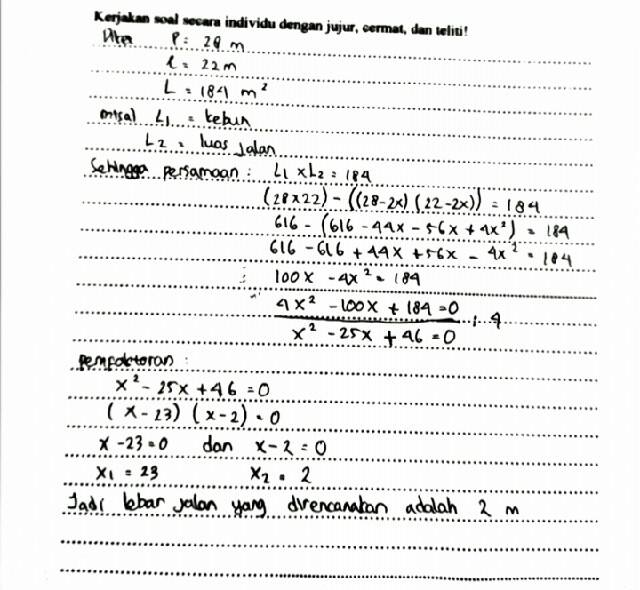 Kerjakan soal secara individu dengan jujur, cermat, dan teliti!
Diket P = 28 m
l = 22 m
L = 184 m²
misal L₁ = kebun
L₂ = luas jalan
Sehingga persamaan : L₁ x L₂ = 184
(28x22) - ((28-2x) (22-2x)) = 184
616 - (616 - 44x - 56x + 4x²) = 184
616 - 616 + 44x + 56x - 4x² = 184
100x - 4x² = 184
4x² - 100x + 184 = 0 : 4
x² - 25x + 46 = 0
pemfaktoran :
x² - 25x + 46 = 0
(x - 23) (x - 2) = 0
x - 23 = 0 dan x - 2 = 0
x₁ = 23 x₂ = 2
Jadi lebar jalan yang direncanakan adalah 2 m